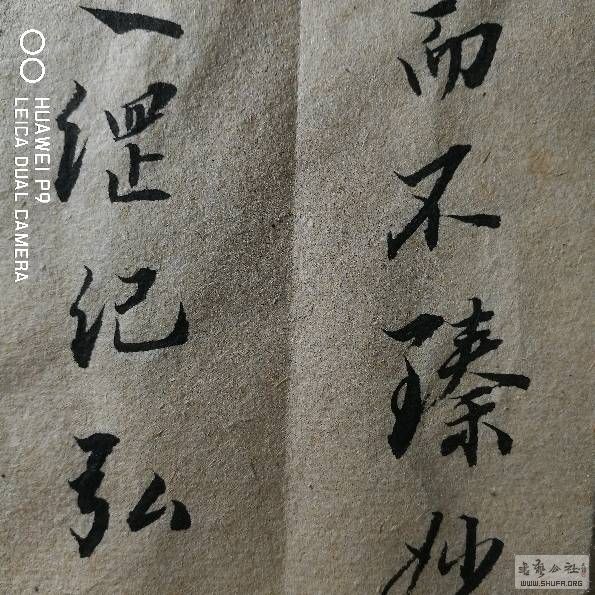 而不臻妙
纪弘
HUAWEI P9
LEICA DUAL CAMERA
WWW.SHUFA.ORG